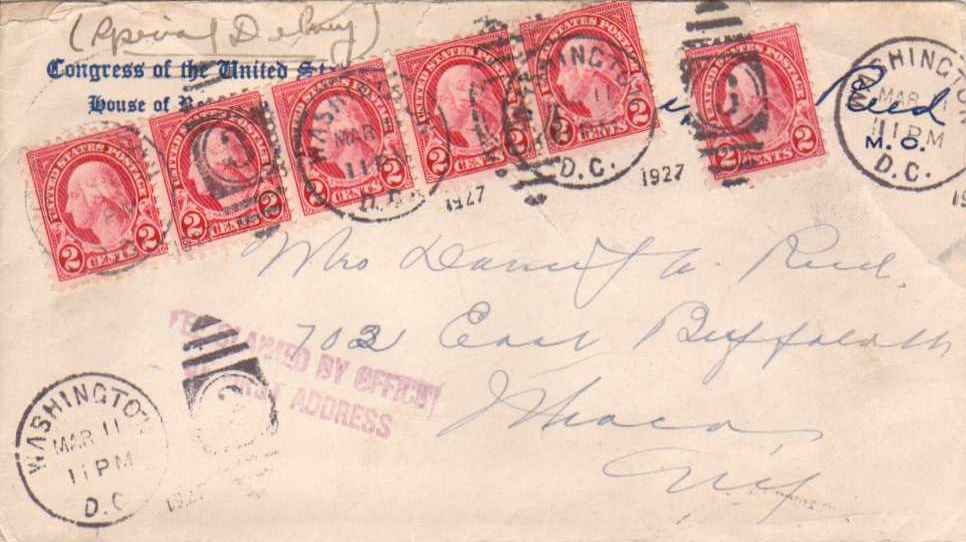 (Special Delivery)
Congress of the United St
House of Re
Reed
M. C.
UNITED STATES POSTAGE
2 CENTS 2
UNITED STATES POSTAGE
2 CENTS 2
UNITED STATES POSTAGE
2 CENTS 2
UNITED STATES POSTAGE
2 CENTS 2
UNITED STATES POSTAGE
2 CENTS 2
UNITED STATES POSTAGE
2 CENTS 2
WASHINGTON
MAR
11 P
D.C.
1927
WASHINGTON
11
D.C.
1927
WASHINGTON
MAR 11
11 PM
D.C.
19
Mrs Daniel A. Reed
702 East Buffalo St
Ithaca
N.Y.
CLAIMED BY OFFICE
ADDRESS
WASHINGTON
MAR 11
11 PM
D.C.
1927